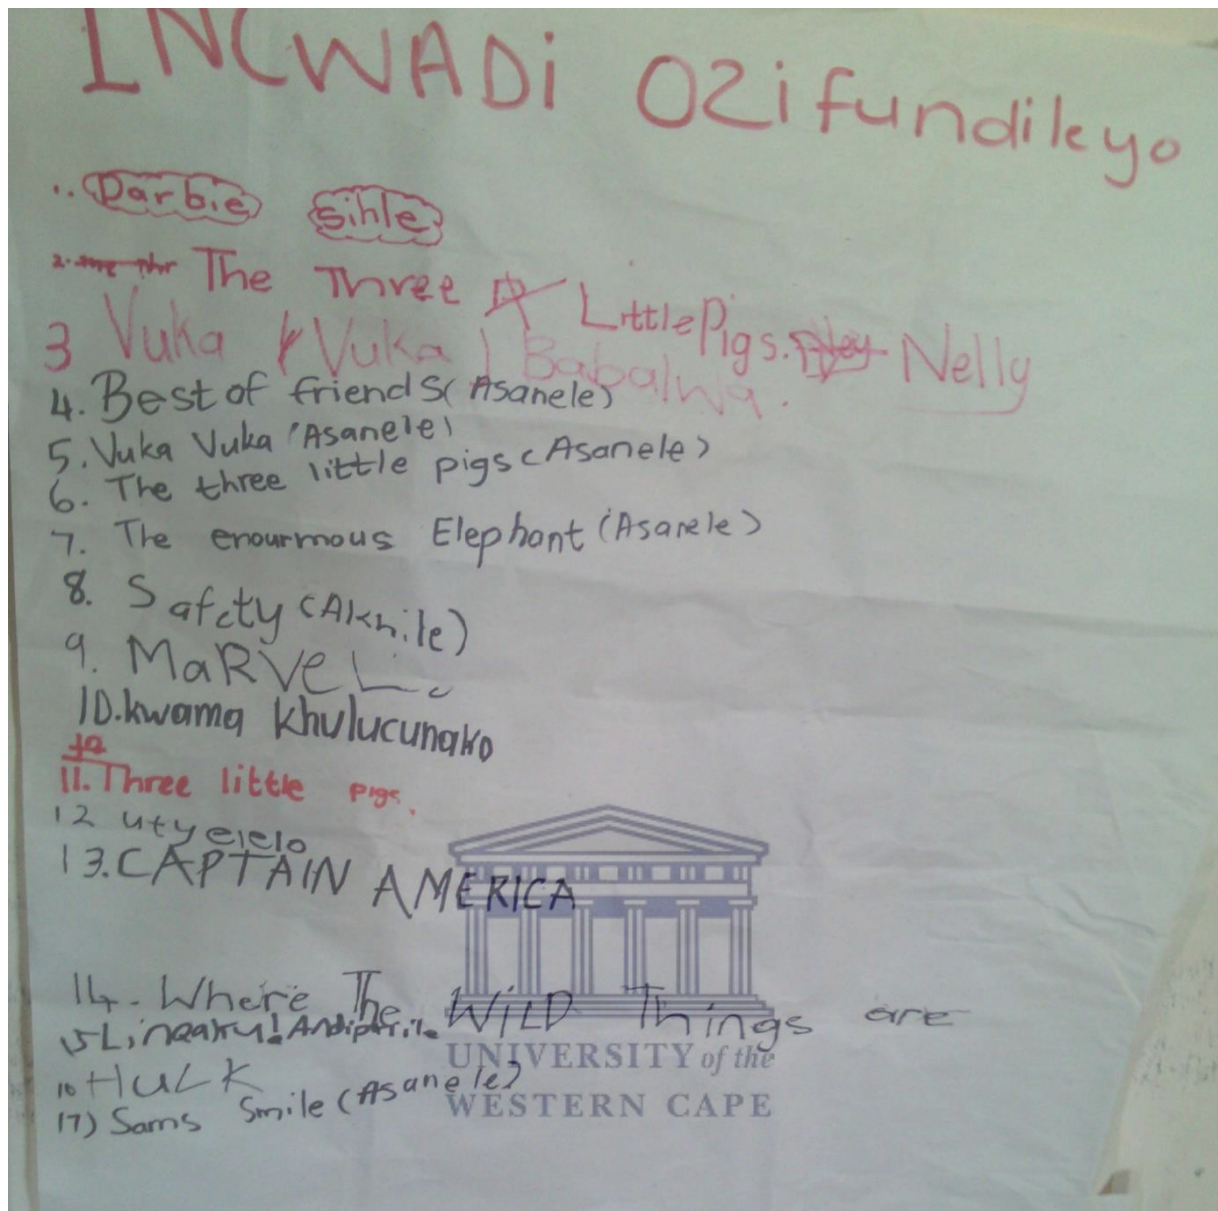 INCWADi OZifundileyo
1. Darbie Sihle
2. The Three Little Pigs. Nelly
3 Vuka Vuka ) Babalwa.
4. Best of friends (Asanele)
5. Vuka Vuka (Asanele)
6. The three little pigs (Asanele)
7. The enourmous Elephant (Asanele)
8. Safety (Aknile)
9. MaRVeL
10. kwama khulucunako
11. Three little pigs.
12 utyelelo
13. CAPTAIN AMERICA
14. Where The WiLD Things are
15
16 HuLK
17) Sams Smile (Asanele)
UNIVERSITY of the
WESTERN CAPE